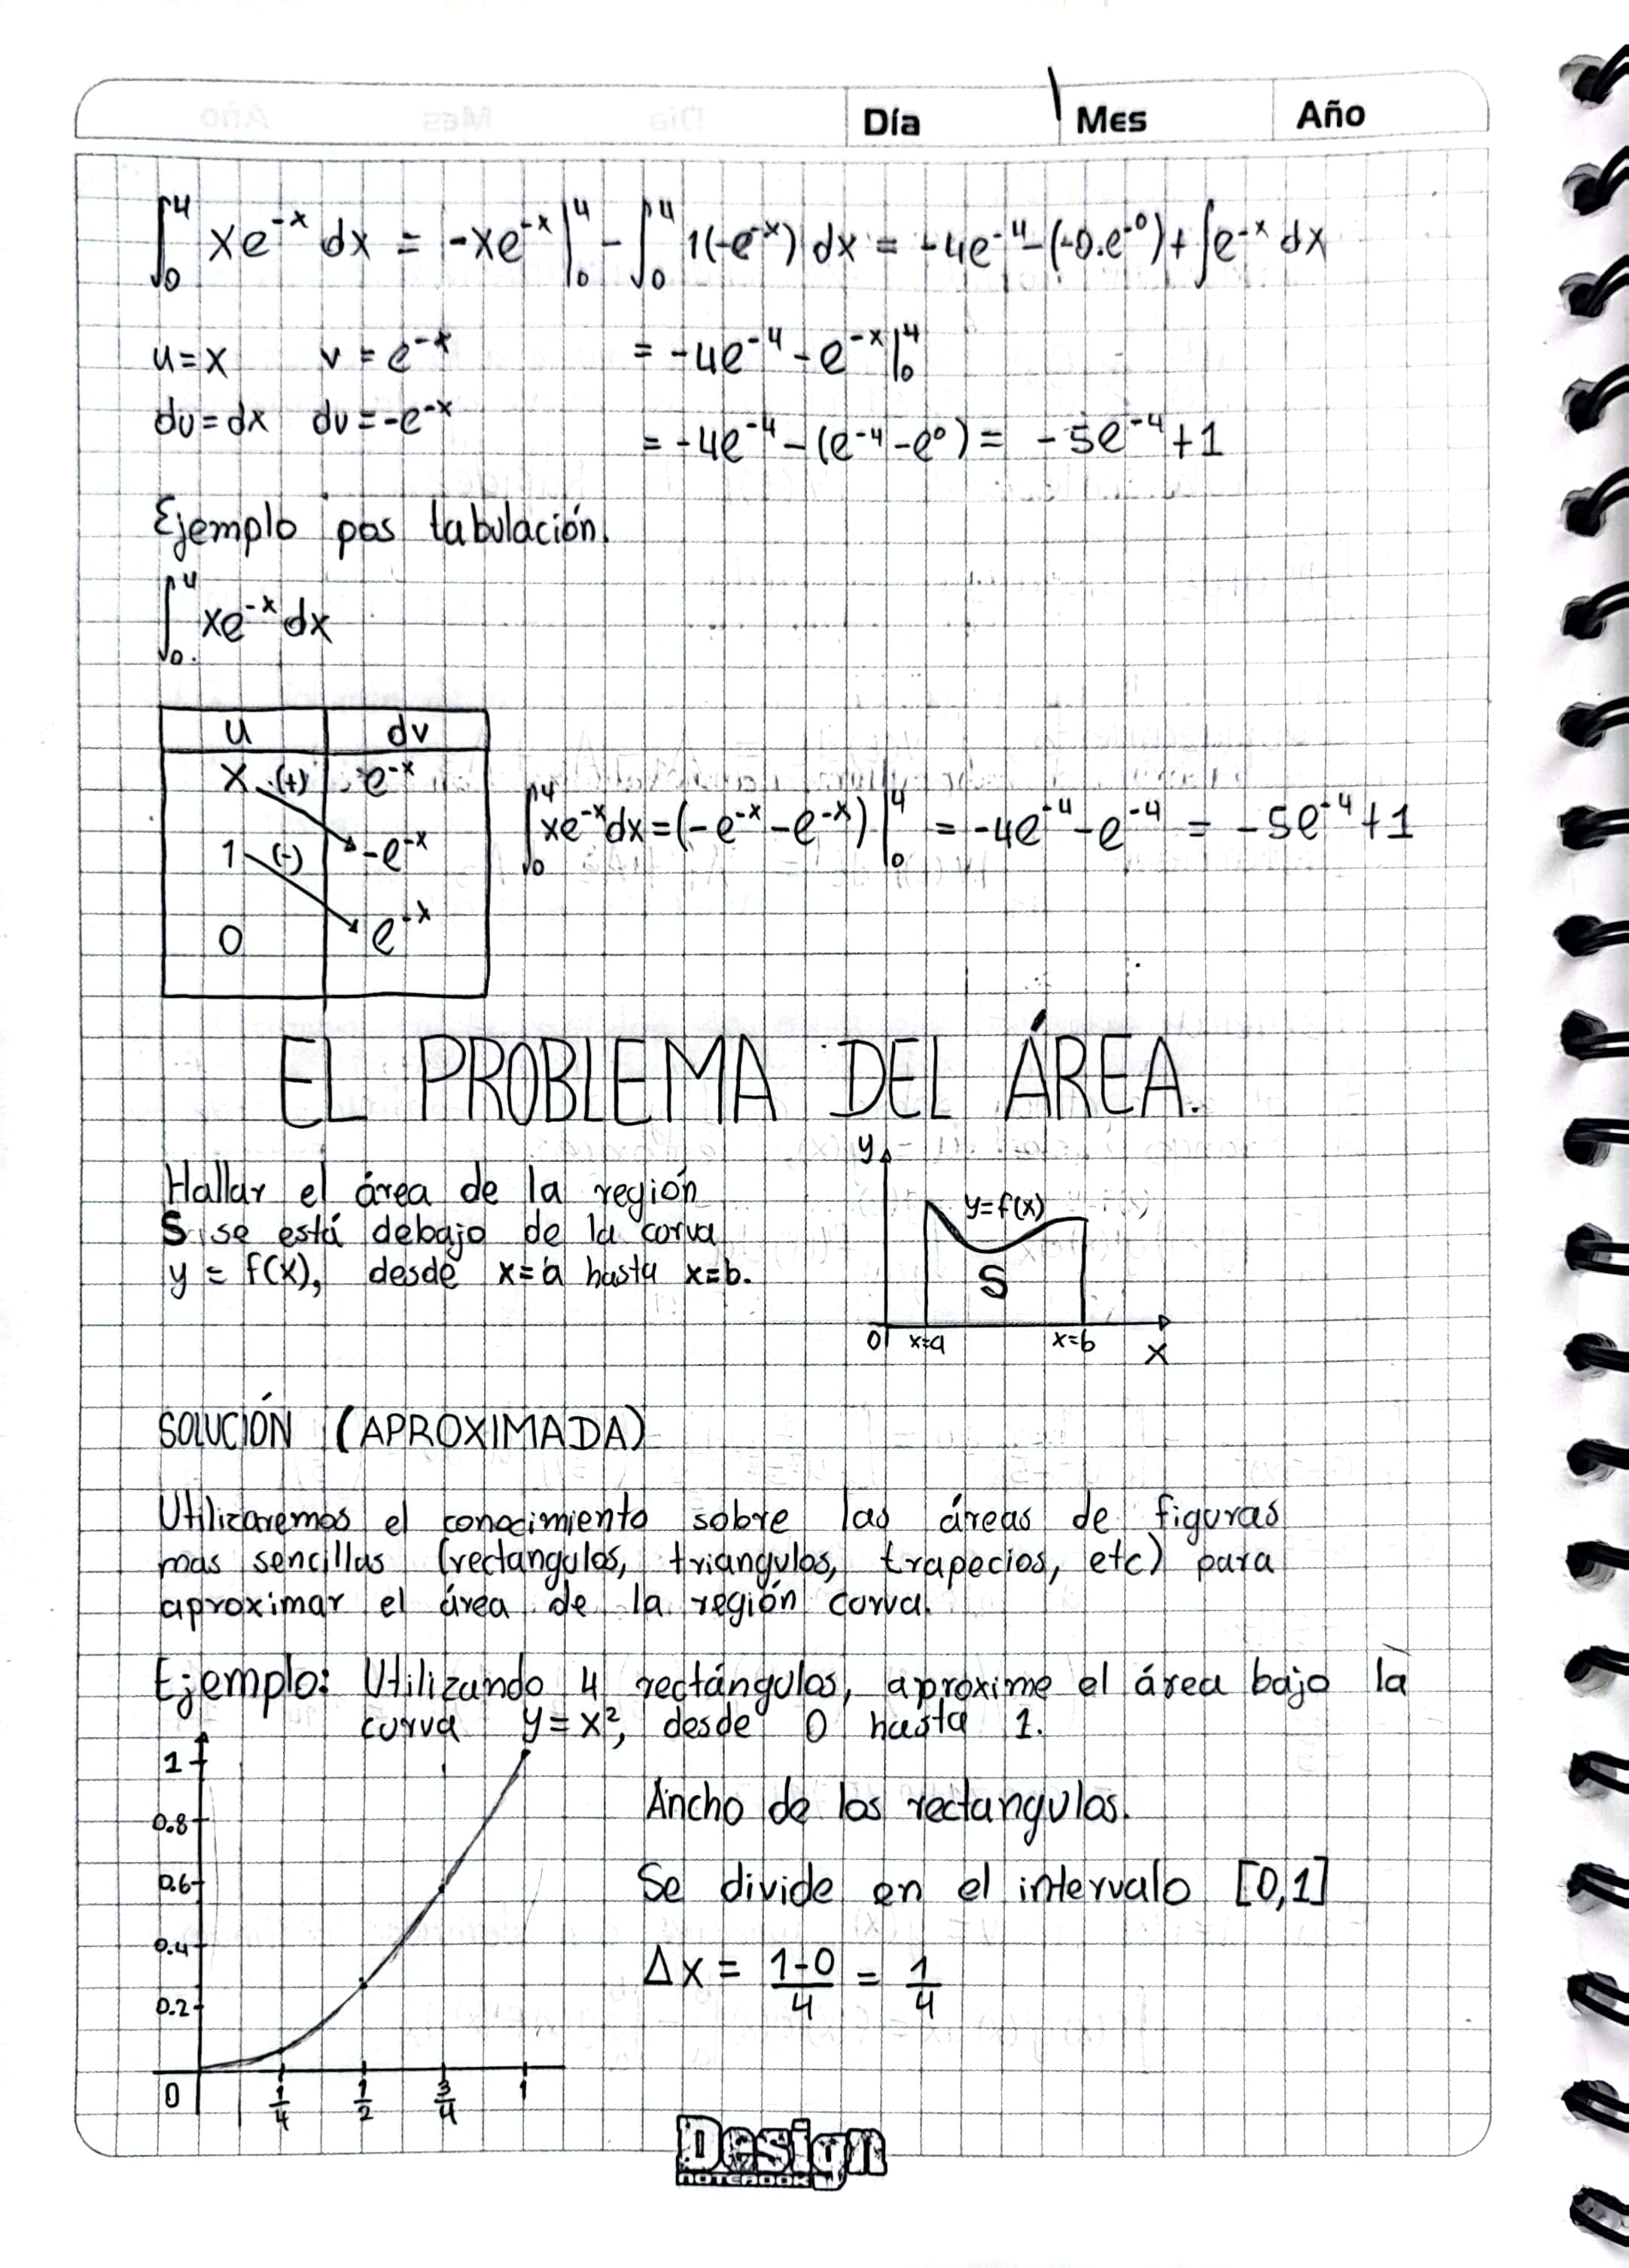 Día Mes Año
∫₀⁴ xe⁻ˣ dx = -xe⁻ˣ|₀⁴ - ∫₀⁴ 1(-e⁻ˣ) dx = -4e⁻⁴-(-0.e⁻⁰)+∫e⁻ˣ dx
u=x v=e⁻ˣ = -4e⁻⁴-e⁻ˣ|₀⁴
du=dx dv=-e⁻ˣ = -4e⁻⁴-(e⁻⁴-e⁰) = -5e⁻⁴+1
Ejemplo pos tabulación.
∫₀⁴ xe⁻ˣ dx
u dv
x (+) e⁻ˣ
∫₀⁴ xe⁻ˣdx=(-e⁻ˣ-e⁻ˣ)|₀⁴ = -4e⁻⁴-e⁻⁴ = -5e⁻⁴+1
1 (-) -e⁻ˣ
0 e⁻ˣ
EL PROBLEMA DEL ÁREA.
Hallar el área de la región
S se está debajo de la curva
y = f(x), desde x=a hasta x=b.
y
y=f(x)
S
0 x=a x=b x
SOLUCIÓN (APROXIMADA)
Utilizaremos el conocimiento sobre las áreas de figuras
mas sencillas (rectangulos, triangulos, trapecios, etc) para
aproximar el área de la región curva.
Ejemplo: Utilizando 4 rectángulos, aproxime el área bajo la
curva y=x², desde 0 hasta 1.
1
0.8
0.6
0.4
0.2
0 1/4 1/2 3/4 1
Ancho de los rectangulos.
Se divide en el intervalo [0,1]
Δx = 1-0/4 = 1/4
Design
NOTEBOOK